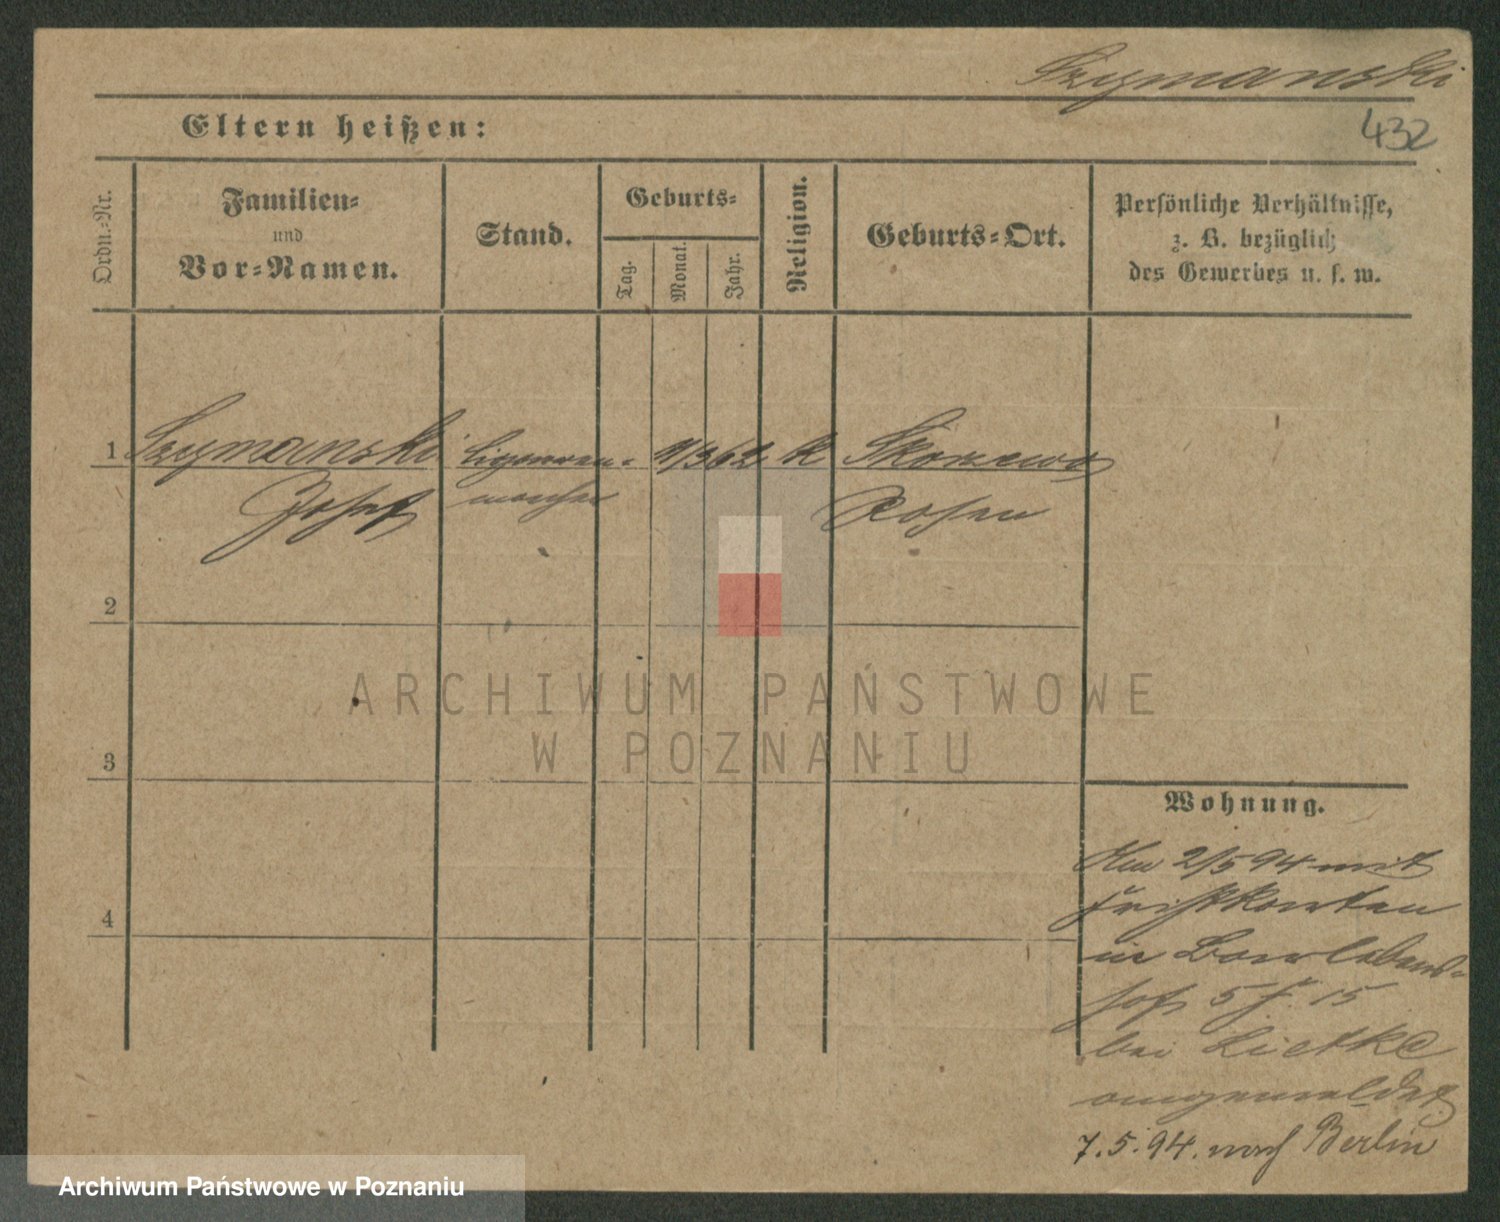 Szymanski
432
Eltern heißen:
Ordn.-Nr.
Familien-
und
Vor-Namen.
Stand.
Geburts-
Tag.
Monat.
Jahr.
Religion.
Geburts-Ort.
Persönliche Verhältnisse,
z. B. bezüglich
des Gewerbes u. s. w.
1 Szymanski Zigarren- 9/3 62 k Skorzewo
Josef macher Posen
2
3
4
Wohnung.
Am 2/5 94 mit
Fristkarten
in
hof 5 I. 15
bei Lietke
angemeldet
7.5.94. nach Berlin
ARCHIWUM PAŃSTWOWE
W POZNANIU
Archiwum Państwowe w Poznaniu